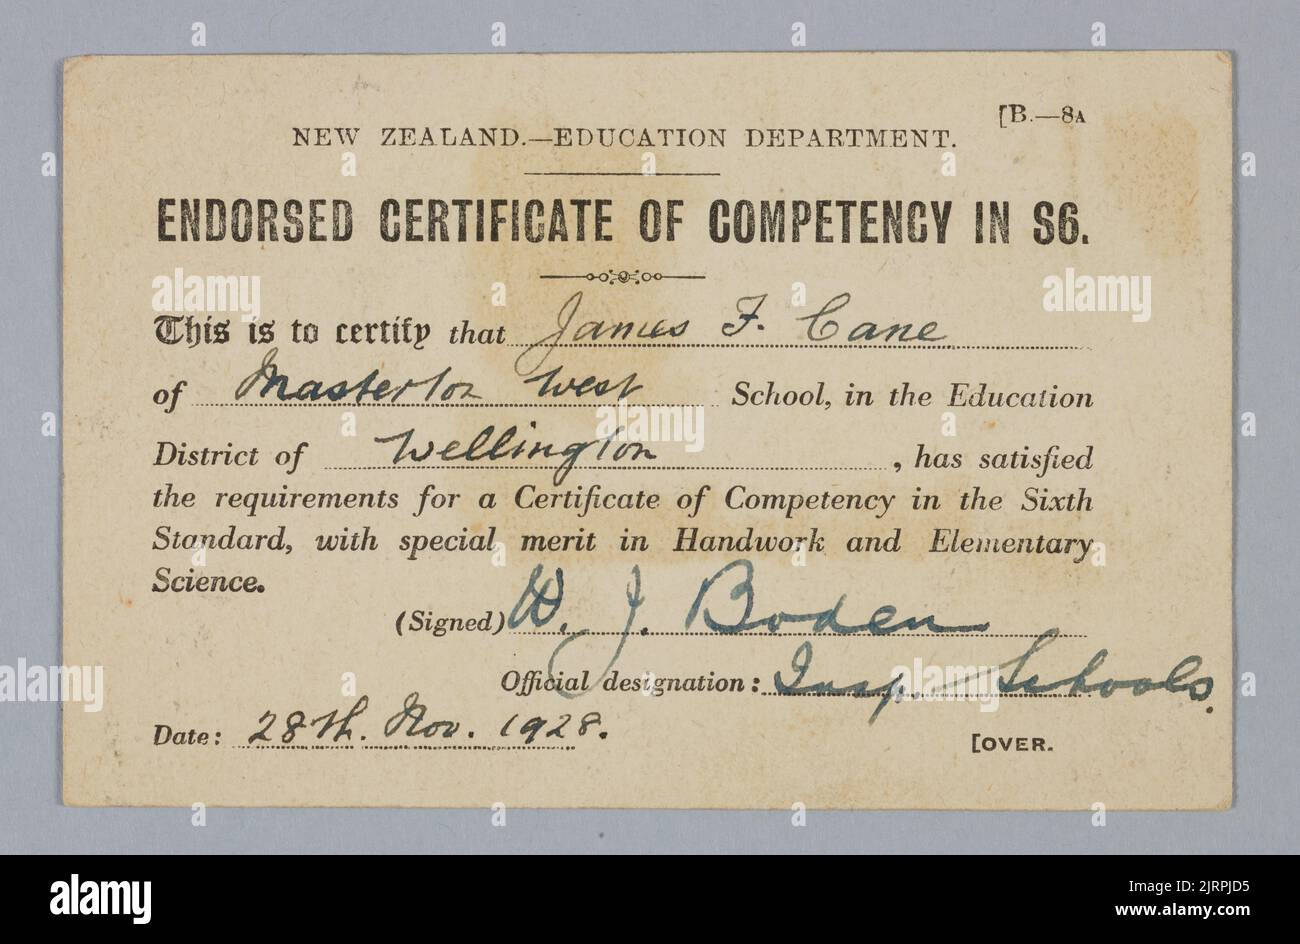 [B.—8A
NEW ZEALAND.—EDUCATION DEPARTMENT.
ENDORSED CERTIFICATE OF COMPETENCY IN S6.
This is to certify that James F. Cane
of Masterton West School, in the Education
District of Wellington, has satisfied
the requirements for a Certificate of Competency in the Sixth
Standard, with special merit in Handwork and Elementary
Science.
(Signed) W. J. Boden
Official designation: Insp. Schools.
Date: 28th. Nov. 1928.
[OVER.
alamy
Image ID: 2JRPJD5
www.alamy.com